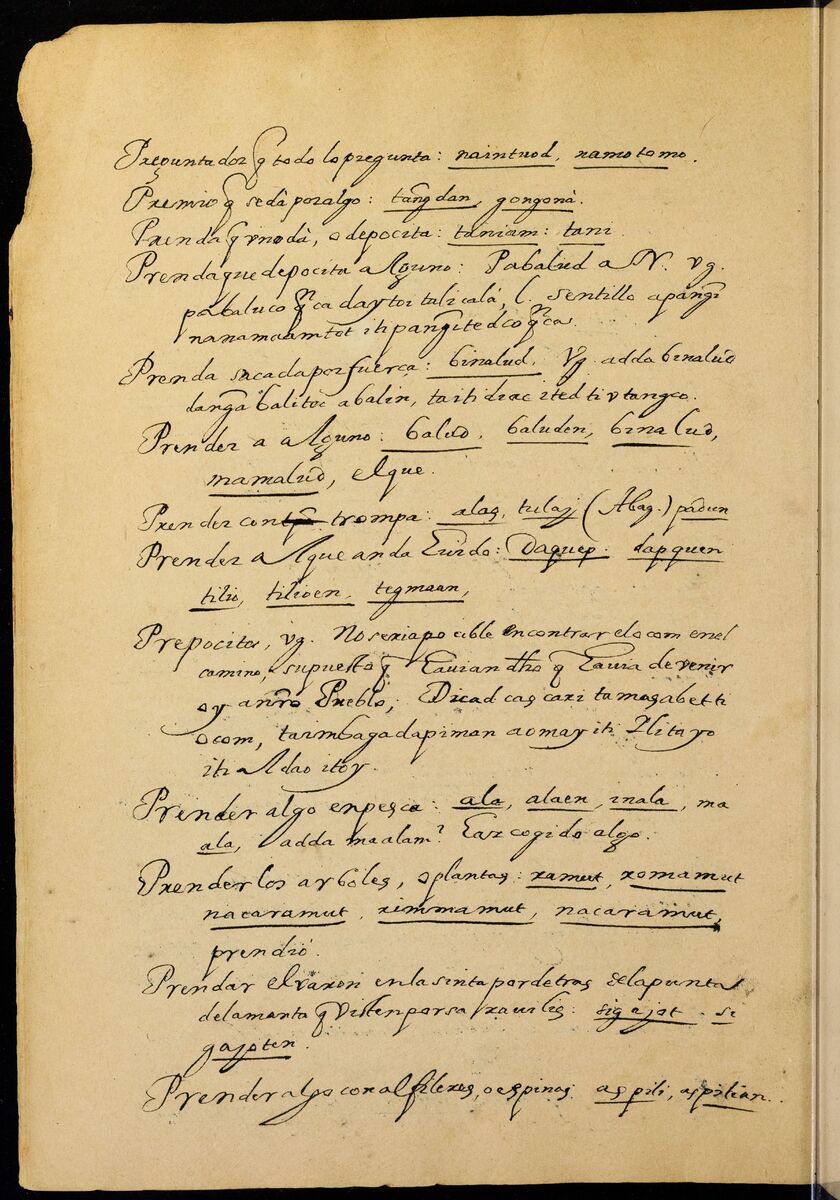 Preguntador q̃ todo lo pregunta: naintuod, ramotomo.
Premio q̃ se dà por algo: tangdan, gongonà.
Prenda q̃ vno dà, o depocita: taniam: tani
Prenda que depocita a Alguno: Pabalud a N. vg.
pabaluco q̃n ca daytoi tulicalà, l. sentillo a pang̃i
nanamaamtot iti pang̃itedco q̃n ca.
Prenda sacada por fuerça: binalud. Vg. adda binalud
dang̃a balitoc a balin, ta iti diac ited ti vtangco.
Prender a alguno: balud, baluden, binalud,
mamalud, el que.
Prender con trompa: alas, tulaj (Abag.) padun
Prender al que anda Euido: Daquep. dapquen
tilio, tilioen, tegmaan,
Prepocito, vg. No seria pocible encontrar elocom en el
camino, supuesto q̃ Eauian dho q̃ Eauia de venir
oy a nrõ Pueblo; Dicad cas cari tamasabet ti
ocom, ta imbagada piman a omay iti Ili tayo
iti Aldao itoy.
Prender algo en pesca: ala, alaen, inala, ma
ala, adda maalam? Eas cogido algo.
Prender los arboles, o plantas: ramut, romamut
nacaramut, rimmamut, nacaramut,
prendió.
Prendar el varon en la sinta por detras de la punta
de la manta q̃ visten por sa rauilis: sigajot. si
gajoten.
Prender algo con alfileres, o espinas aspili, aspilian.